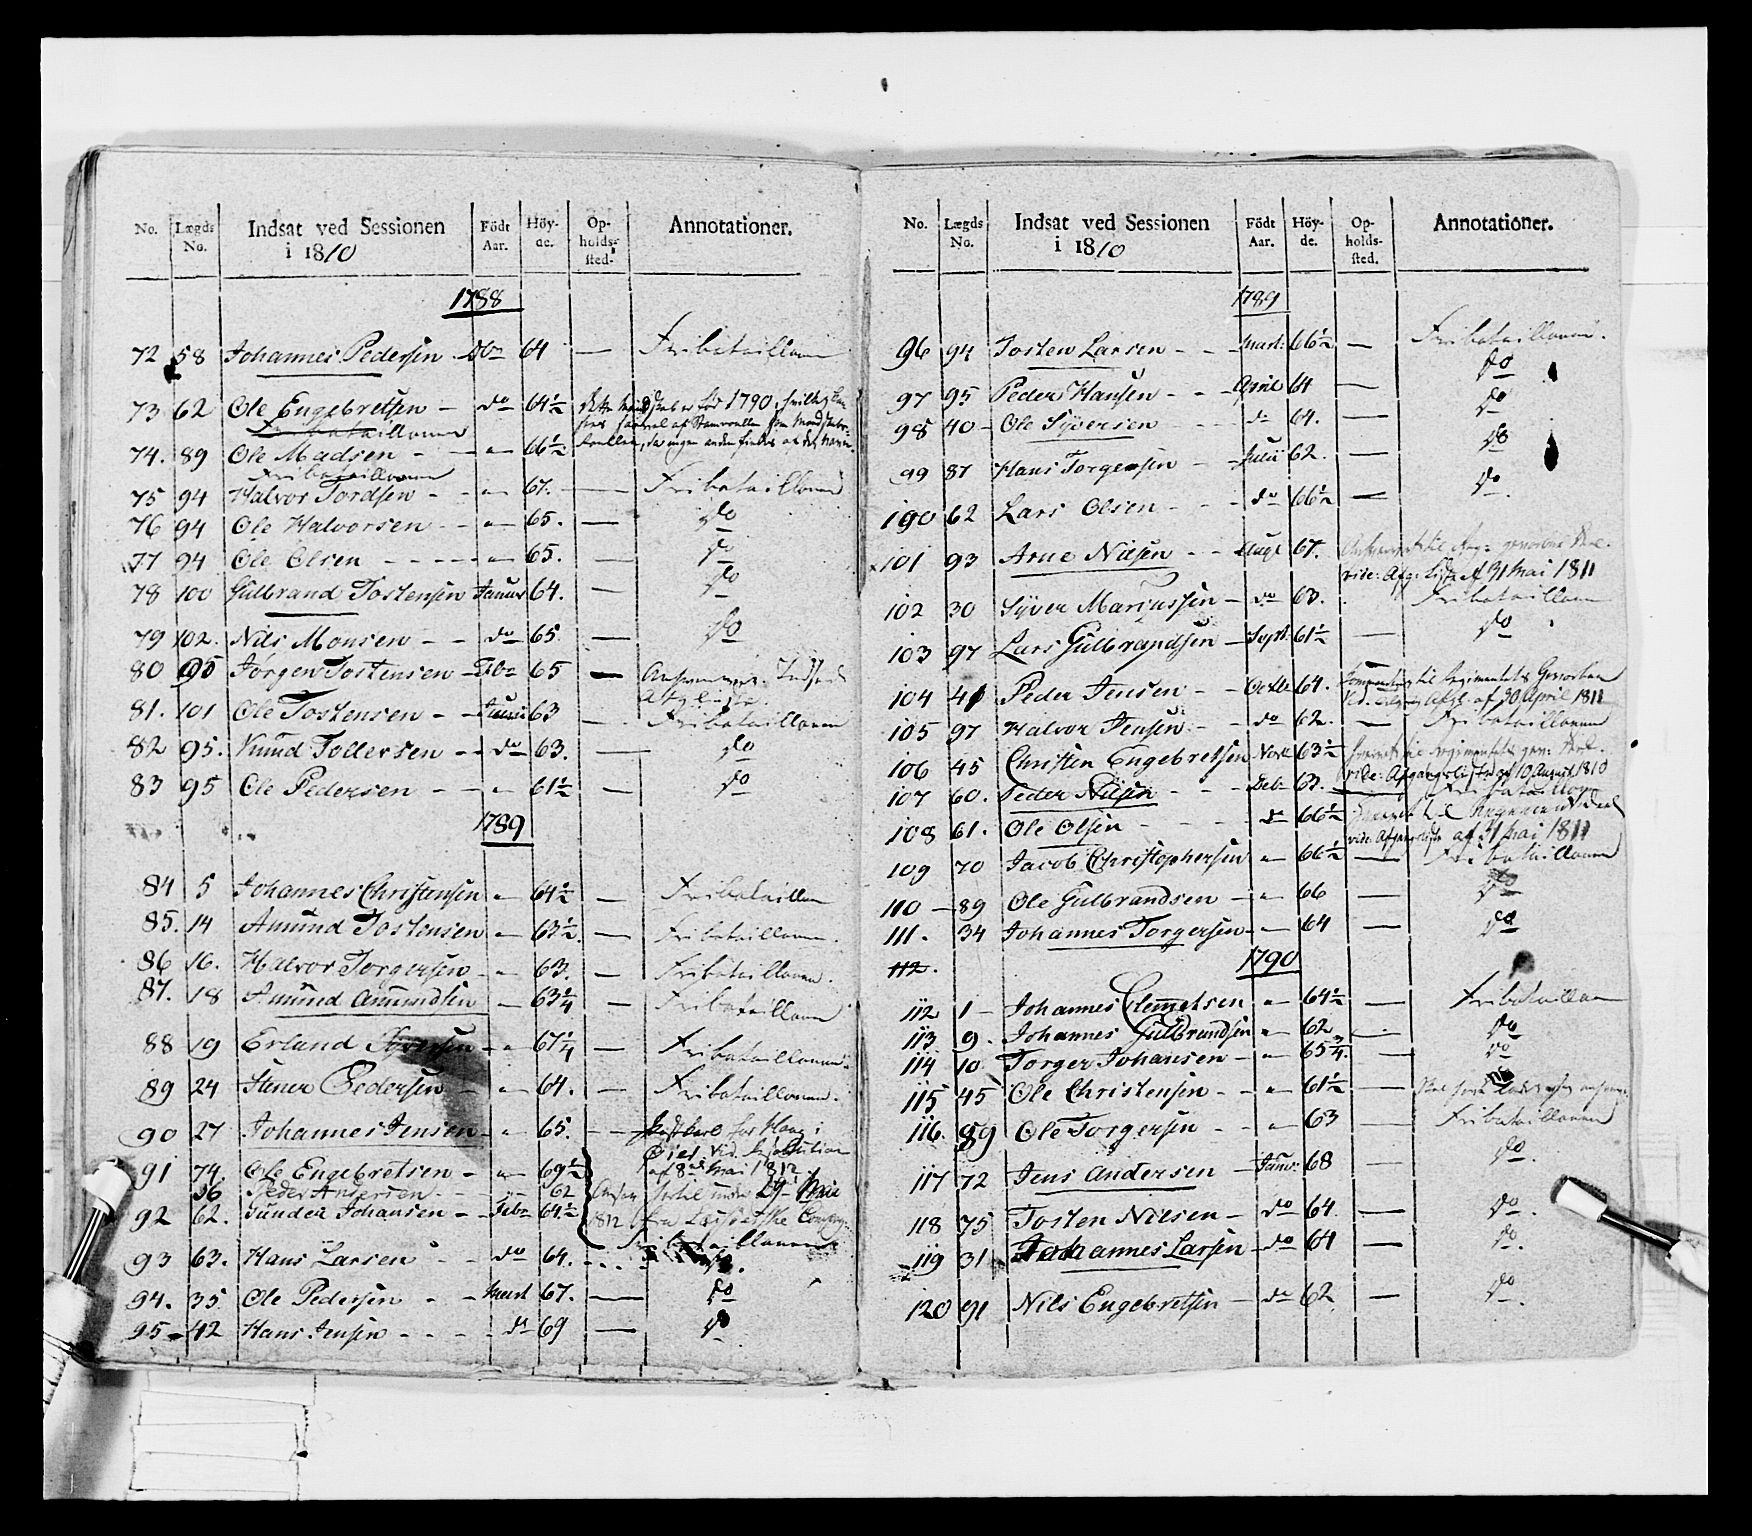 No. Lægds No. Indsat ved Sessionen i 1810 Födt Aar. Höyde. Opholdssted. Annotationer.
1788
72 58 Johannes Pedersen do 64 — Fribataillonen
73 62 Ole Engebretsen — do 64½ 1790
Fribataillonen
74. 89 Ole Madsen - — „ — 66½
Fribataillonen
75 94 Halvor Tordsen - - „ - 67. — Fribataillonen
76 94 Ole Halvorsen - - „ - 65. — do
77 94 Ole Olsen - - - - - „ - 65. — do
78 100 Gulbrand Tostensen Januar 64. — do
79 102. Nils Monsen - - do 65. — do
80 95 Jörgen Tostensen - Feb 65 —
81. 101 Ole Tostensen - - 63 — Fribataillonen
82 95. Knud Tollersen - - do 63. — do
83 95 Ole Pedersen - - „ - 61½ — do
1789
84 5 Johannes Christensen „ 64½ — Fribataillon
85. 14 Amund Tostensen „ 63½. — Fribataillonen.
86 16. Halvor Torgersen - „ 63. — Fribataillonen.
87. 18 Amund Amundsen — 63¼ — Fribataillonen
88 19 Erland Syversen - „ 67¼ — Fribataillonen.
89 24 Stener Pedersen - „ 64. — Fribataillonen.
90 27 Johannes Jensen - „ 65. — for i
vid. Resolution
af 8de Mai 1812.
91 74. Ole Engebretsen - „ 69½
36 Peder Andersen - - - 62 under 29 Mai
92 62. Gunder Johansen - - Febr 64½ 1812 fra
Fribataillonen
93 63. Hans Larsen - - do 64. - - - do.
94. 35 Ole Pedersen - - Mart 67. — do
95 - 42 Hans Jensen - - - - do 69 — do
No. Lægds No. Indsat ved Sessionen i 1810 Födt Aar. Höyde. Opholdssted. Annotationer.
1789
96 94 Tosten Larsen - - - Mart: 66½ — Fribataillonen.
97 95 Peder Hansen - - - April 64 — do
98 40 - Ole Syversen - - - do 64. — do
99 87 Hans Torgersen - - Julii 62. — do
100 62 Lars Olsen - - - do 66½ — do.
101 93 Arne Nilsen - - Aug: 67.
vide: Afg: Liste af 31 Mai 1811
102 30 Syver Mariussen - do 63. Fribataillonen
103 97 Lars Gulbrandsen - Sept. 61½ — do
104 41 Peder Jensen - - Octbr 64. til Regimentets
af 30 April 1811
105 97 Halvor Jensen - - do 62. — Fribataillonen
106 45 Christen Engebretsen Novbr 63½ til Regimentets
vide: Afgangsliste af 10 August 1810
107 60. Peder Nilsen - - - Debr 63. — Fribataillonen
108 61. Ole Olsen - - - - do 66½
vide Afgangsliste af 31 Mai 1811
109 70 Jacob Christophersen „ 66½ — Fribataillonen
110 - 89 Ole Gulbrandsen - „ 66 — do
111. 34 Johannes Torgersen - „ 64 — do
112.
1790
112 1 - Johannes Clemmetsen „ 64½ — Fribataillon
113 9. Johannes Gulbrandsen „ 62 — do
114 10 Torger Johansen - „ 65¾. — do
115 45 Ole Christensen - - „ 61½ —
116. 89 Ole Torgersen - „ 63 — Fribataillonen
117 72 Jens Andersen - Janu: 68 — do.
118 75 Tosten Nilsen - do 64. — do.
119 31 Johannes Larsen - do 64 — do.
120 91 Nils Engebretsen - do 62 — do.